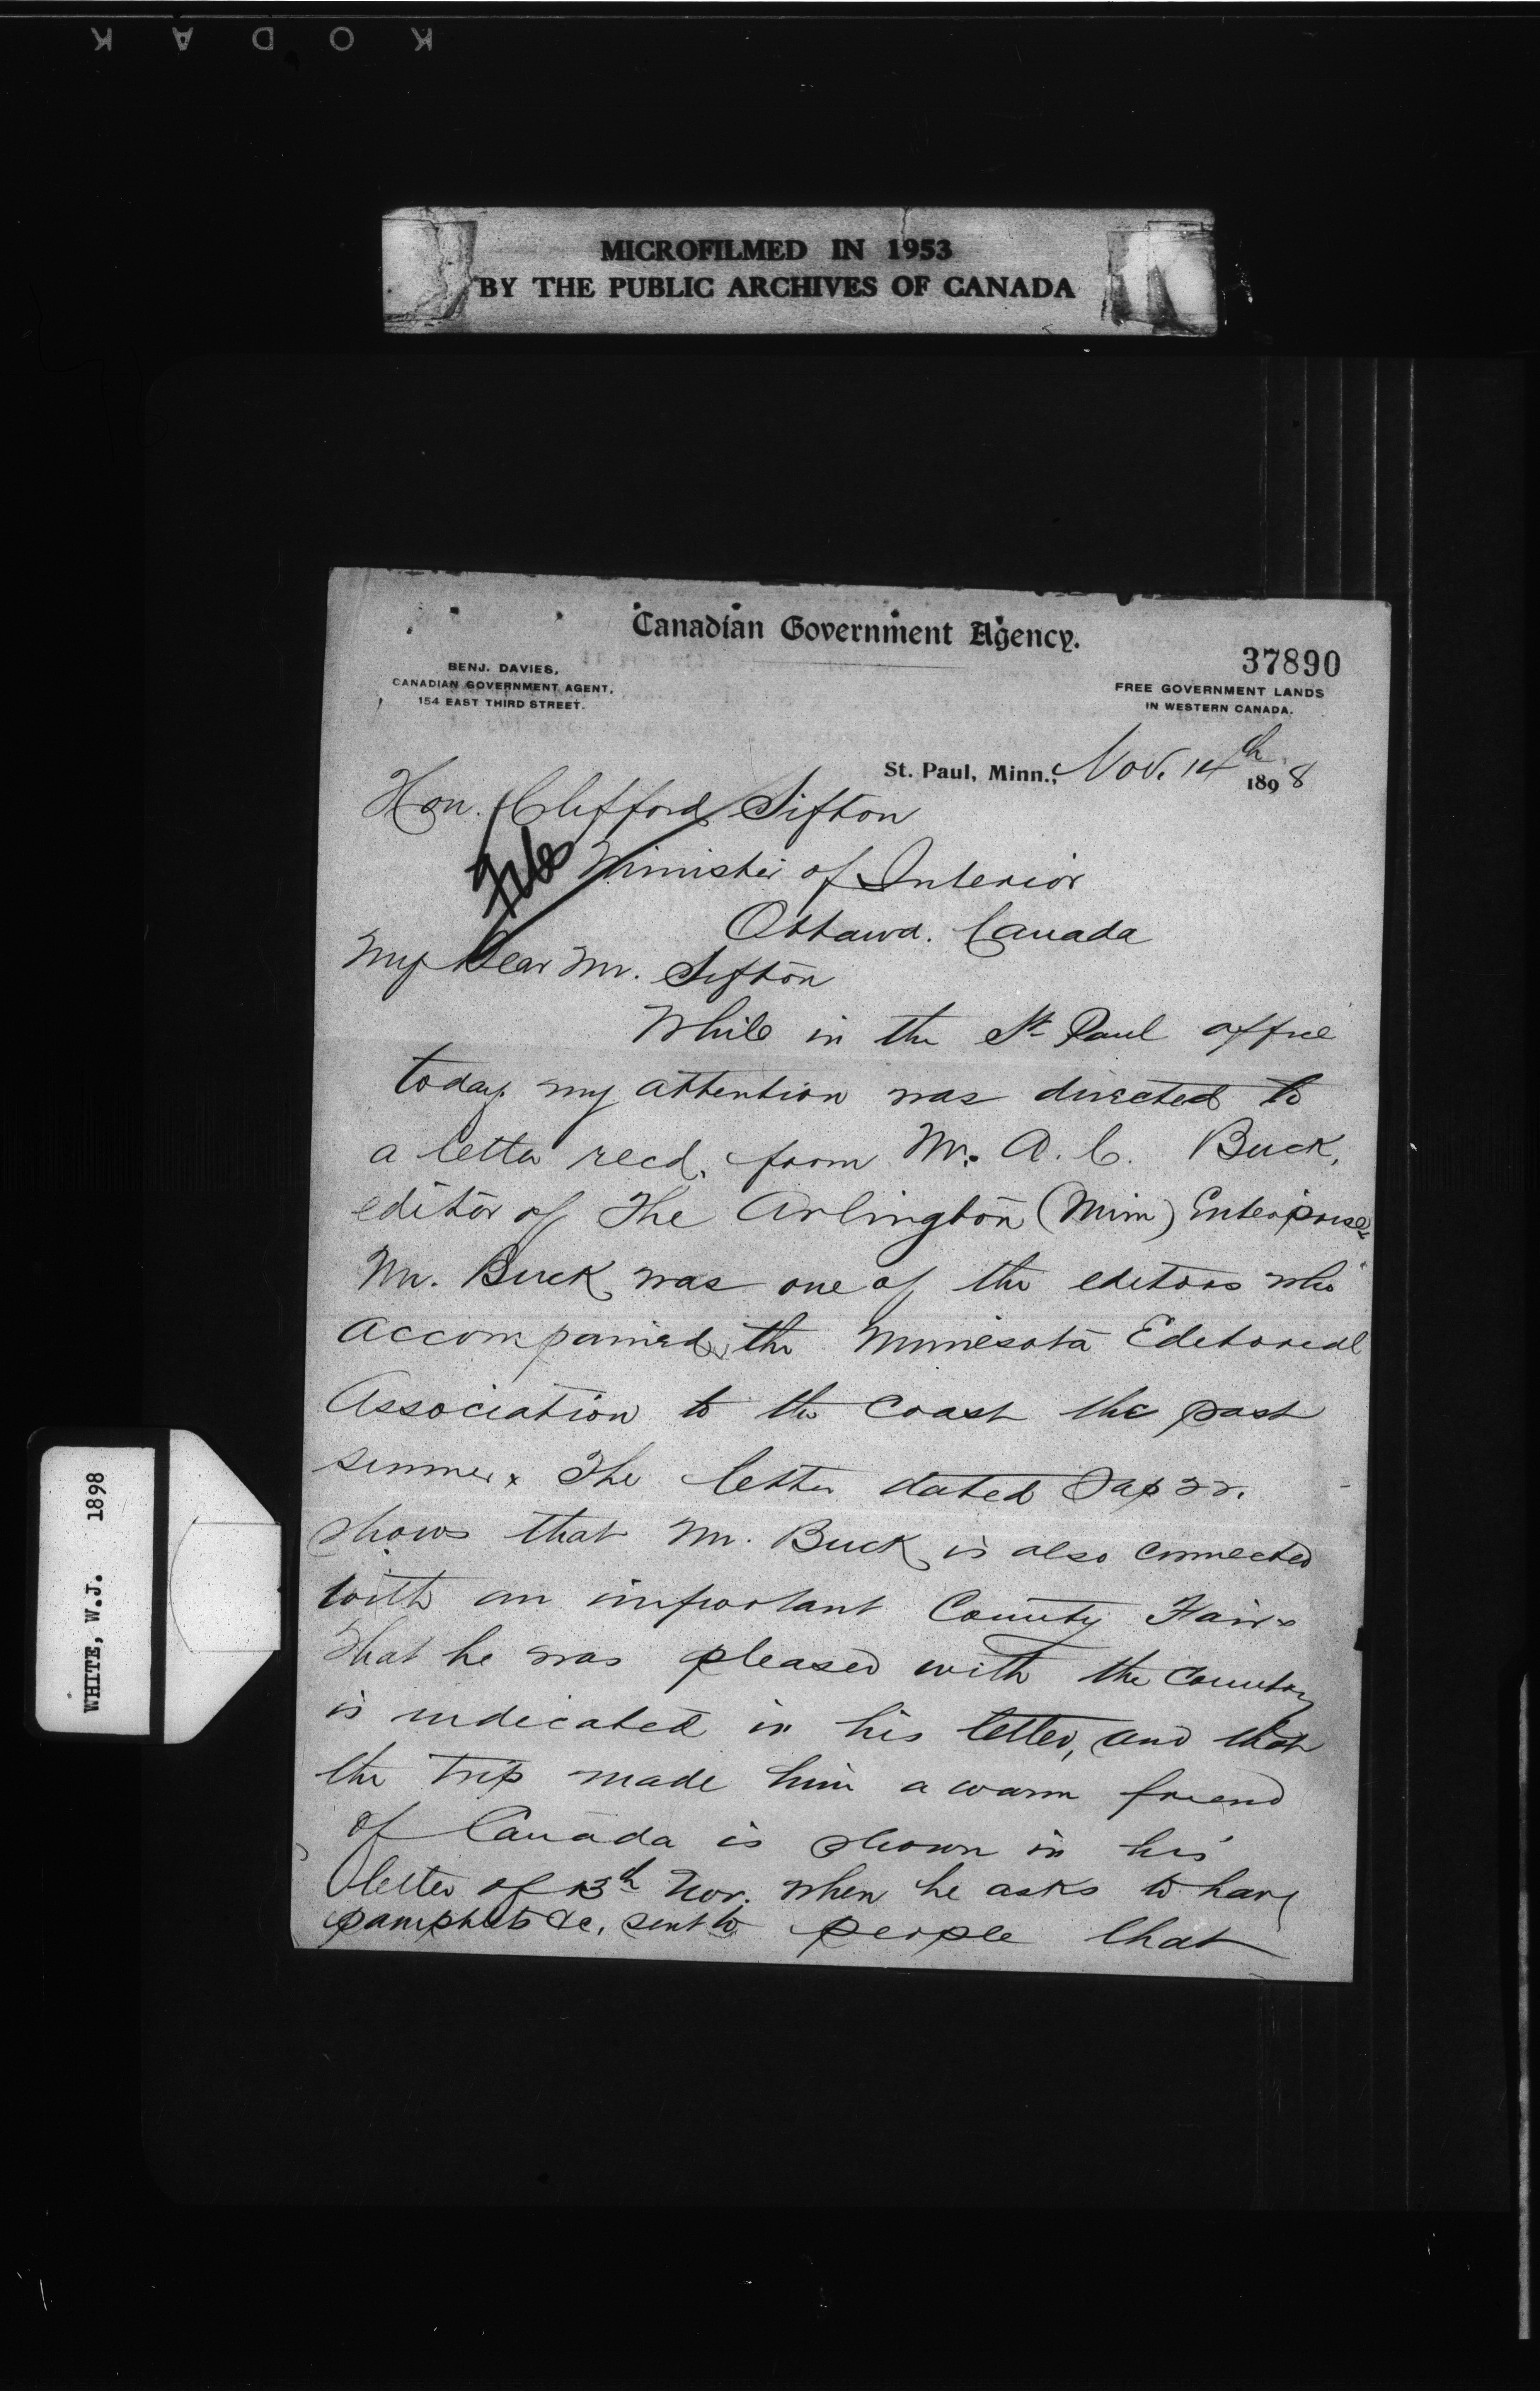 KODAK
MICROFILMED IN 1953
BY THE PUBLIC ARCHIVES OF CANADA
Canadian Government Agency.
37890
BENJ. DAVIES,
CANADIAN GOVERNMENT AGENT,
154 EAST THIRD STREET.
FREE GOVERNMENT LANDS
IN WESTERN CANADA.
St. Paul, Minn., Nov. 14th 1898
Hon. Clifford Sifton
File
Minister of Interior
Ottawa. Canada
My Dear Mr. Sifton
While in the St Paul office
today my attention was directed to
a letter recd. from Mr. A. C. Buck,
editor of The Arlington (Minn) Enterprise.
Mr. Buck was one of the editors who
accompanied the Minnesota Editorial
Association to the Coast the past
summer. The letter dated Sep 22.
shows that Mr. Buck is also connected
with an important County Fair.
That he was pleased with the Country
is indicated in his letter, and that
the trip made him a warm friend
of Canada is shown in his
letter of 13th Nov. when he asks to have
pamphlets &c. sent to people that
WHITE, W.J. 1898